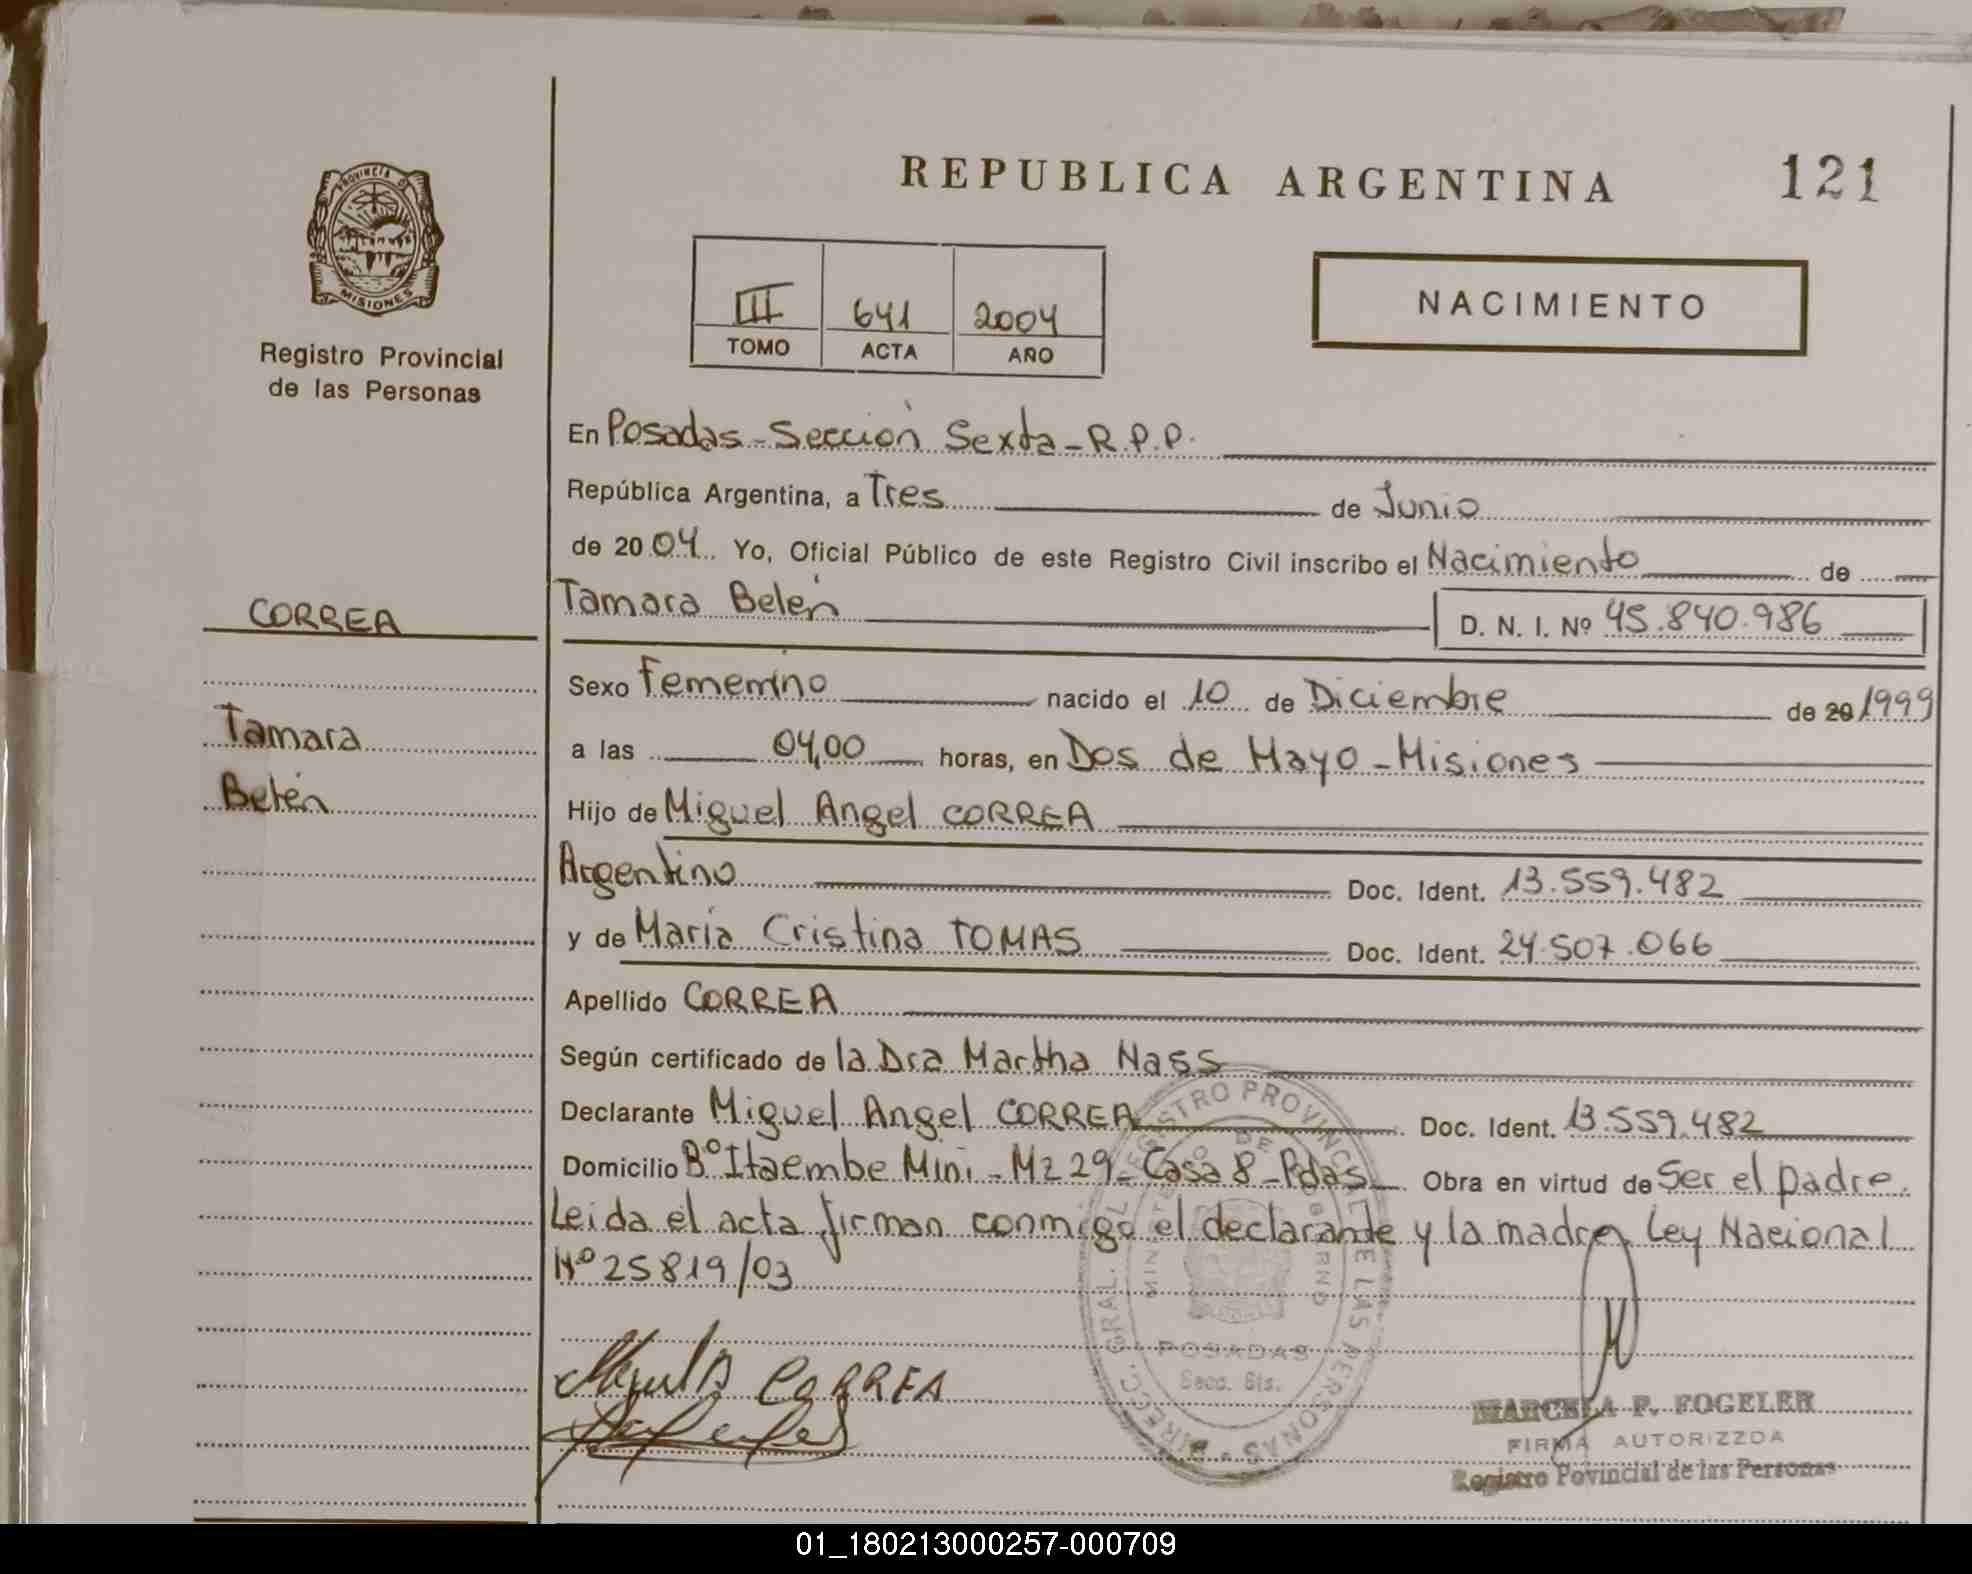 REPUBLICA ARGENTINA 121
PROVINCIA D MISIONES
Registro Provincial
de las Personas
III 641 2004
TOMO ACTA AÑO
NACIMIENTO
En Posadas - Sección Sexta - R.P.P.
República Argentina, a Tres de Junio
de 2004 Yo, Oficial Público de este Registro Civil inscribo el Nacimiento de
CORREA
Tamara Belén D. N. I. Nº 45.840.986
Sexo Femenino nacido el 10 de Diciembre de 20 1999
Tamara
a las 04,00 horas, en Dos de Mayo - Misiones
Belén
Hijo de Miguel Angel CORREA
Argentino Doc. Ident. 13.559.482
y de María Cristina TOMAS Doc. Ident. 24.507.066
Apellido CORREA
Según certificado de la Dra Martha Nass
Declarante Miguel Angel CORREA Doc. Ident. 13.559.482
Domicilio Bº Itaembe Mini - Mz 29 - Casa 8 - Pdas Obra en virtud de Ser el padre.
Leida el acta firman conmigo el declarante y la madre Ley Nacional
Nº 25819/03
DIRECC. GRAL. DEL REGISTRO PROVINCIAL DE LAS PERSONAS
MINISTERIO DE GOBIERNO
POSADAS
Secc. 6ta.
CORREA
MARCELA P. FOGELER
FIRMA AUTORIZZDA
Registro Povincial de las Personas
01_180213000257-000709